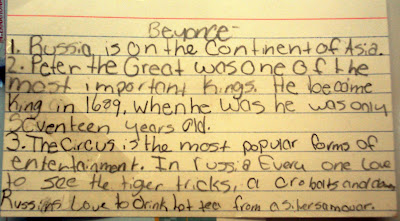 Beyonce-
1. Russia is on the Continent of Asia.
2. Peter the Great was one of the
most important Kings. He become
King in 1689, when he was he was only
Seventeen years old.
3. The Circus is the most popular forms of
entertainment. In russia Every one love
to see the tiger tricks, a crobatts and
Russians Love to Drink hot tea from a silversamovar.